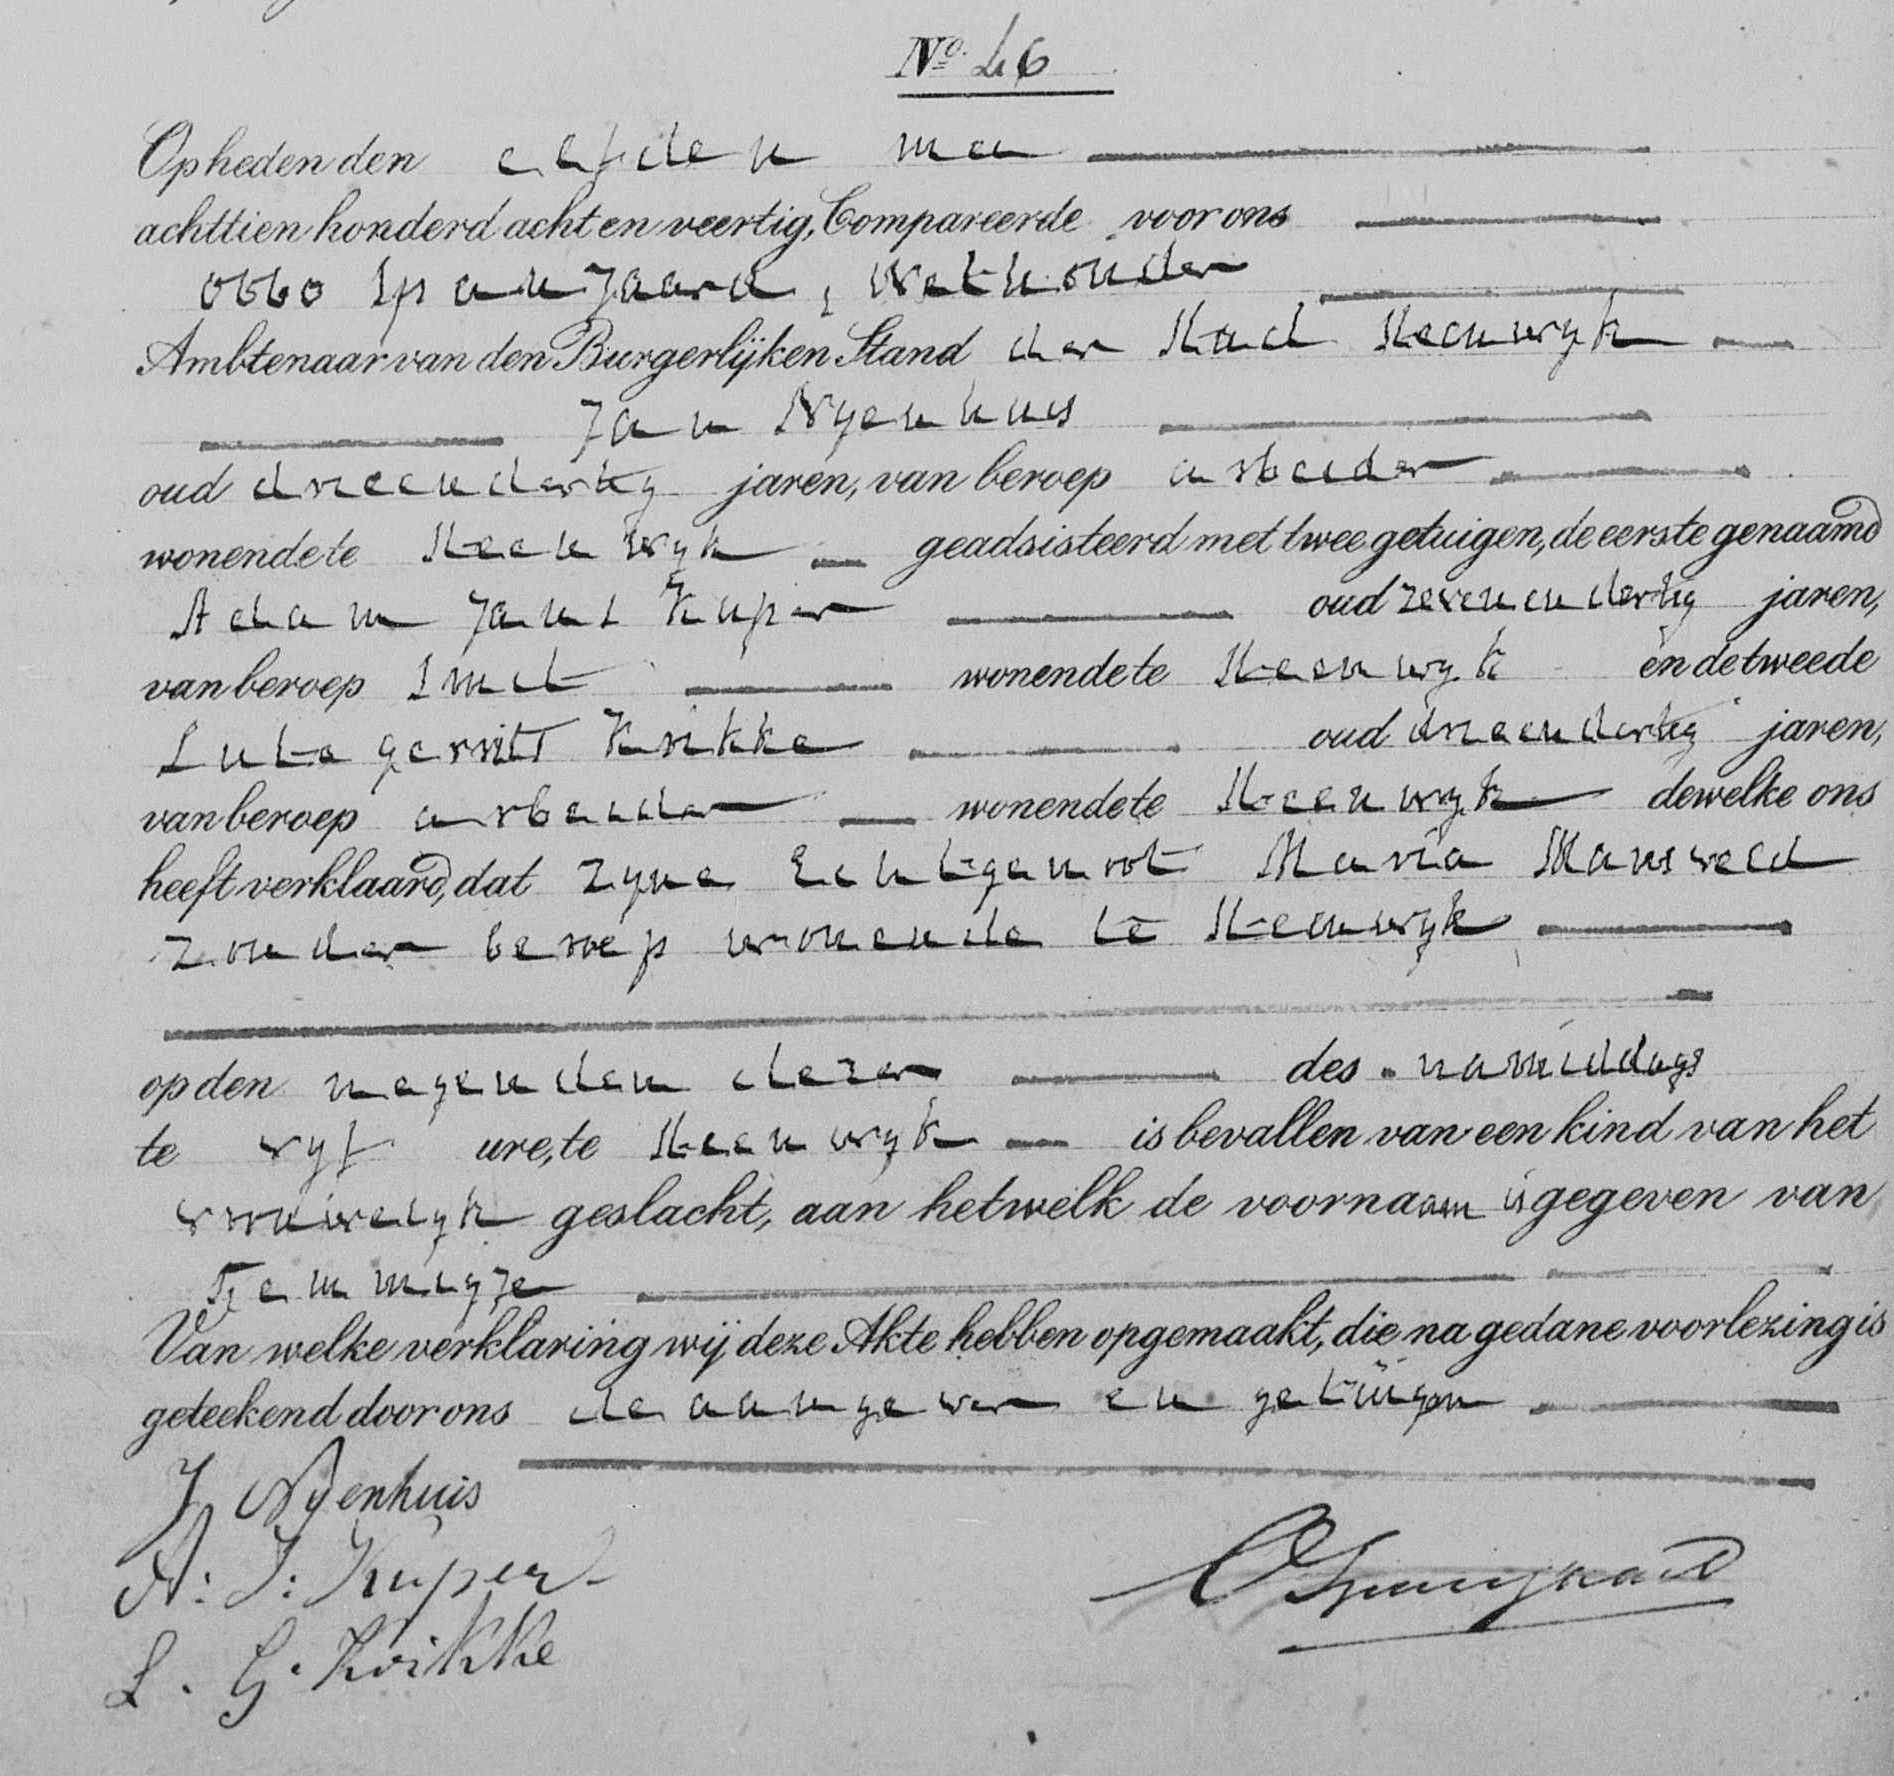 No. 46
Op heden den elfden mei
achttien honderd acht en veertig, Compareerde voor ons
Obbo Spanjaard, Wethouder
Ambtenaar van den Burgerlijken Stand der Stad Steenwyk
Jan Nyenhuis
oud drieendertig jaren, van beroep arbeider
wonende te Steenwyk geadsisteerd met twee getuigen, de eerste genaamd
Adam Jans Kuper oud zevenendertig jaren,
van beroep Smit wonende te Steenwyk en de tweede
Lute gerrits Krikke oud drieendertig jaren,
van beroep arbeider wonende te Steenwyk dewelke ons
heeft verklaard, dat zyne Echtgenoot Maria Mansveld
zonder beroep wonende te Steenwyk
op den negenden dezer des namiddags
te vyf ure, te Steenwyk is bevallen van een kind van het
vrouwelyk geslacht, aan hetwelk de voornaam is gegeven van
Femmigje
Van welke verklaring wij deze Akte hebben opgemaakt, die na gedane voorlezing is
geteekend door ons de aangever en getuigen
J Nyenhuis
A: J: Kuper
O Spanjaard
L. G. Krikke